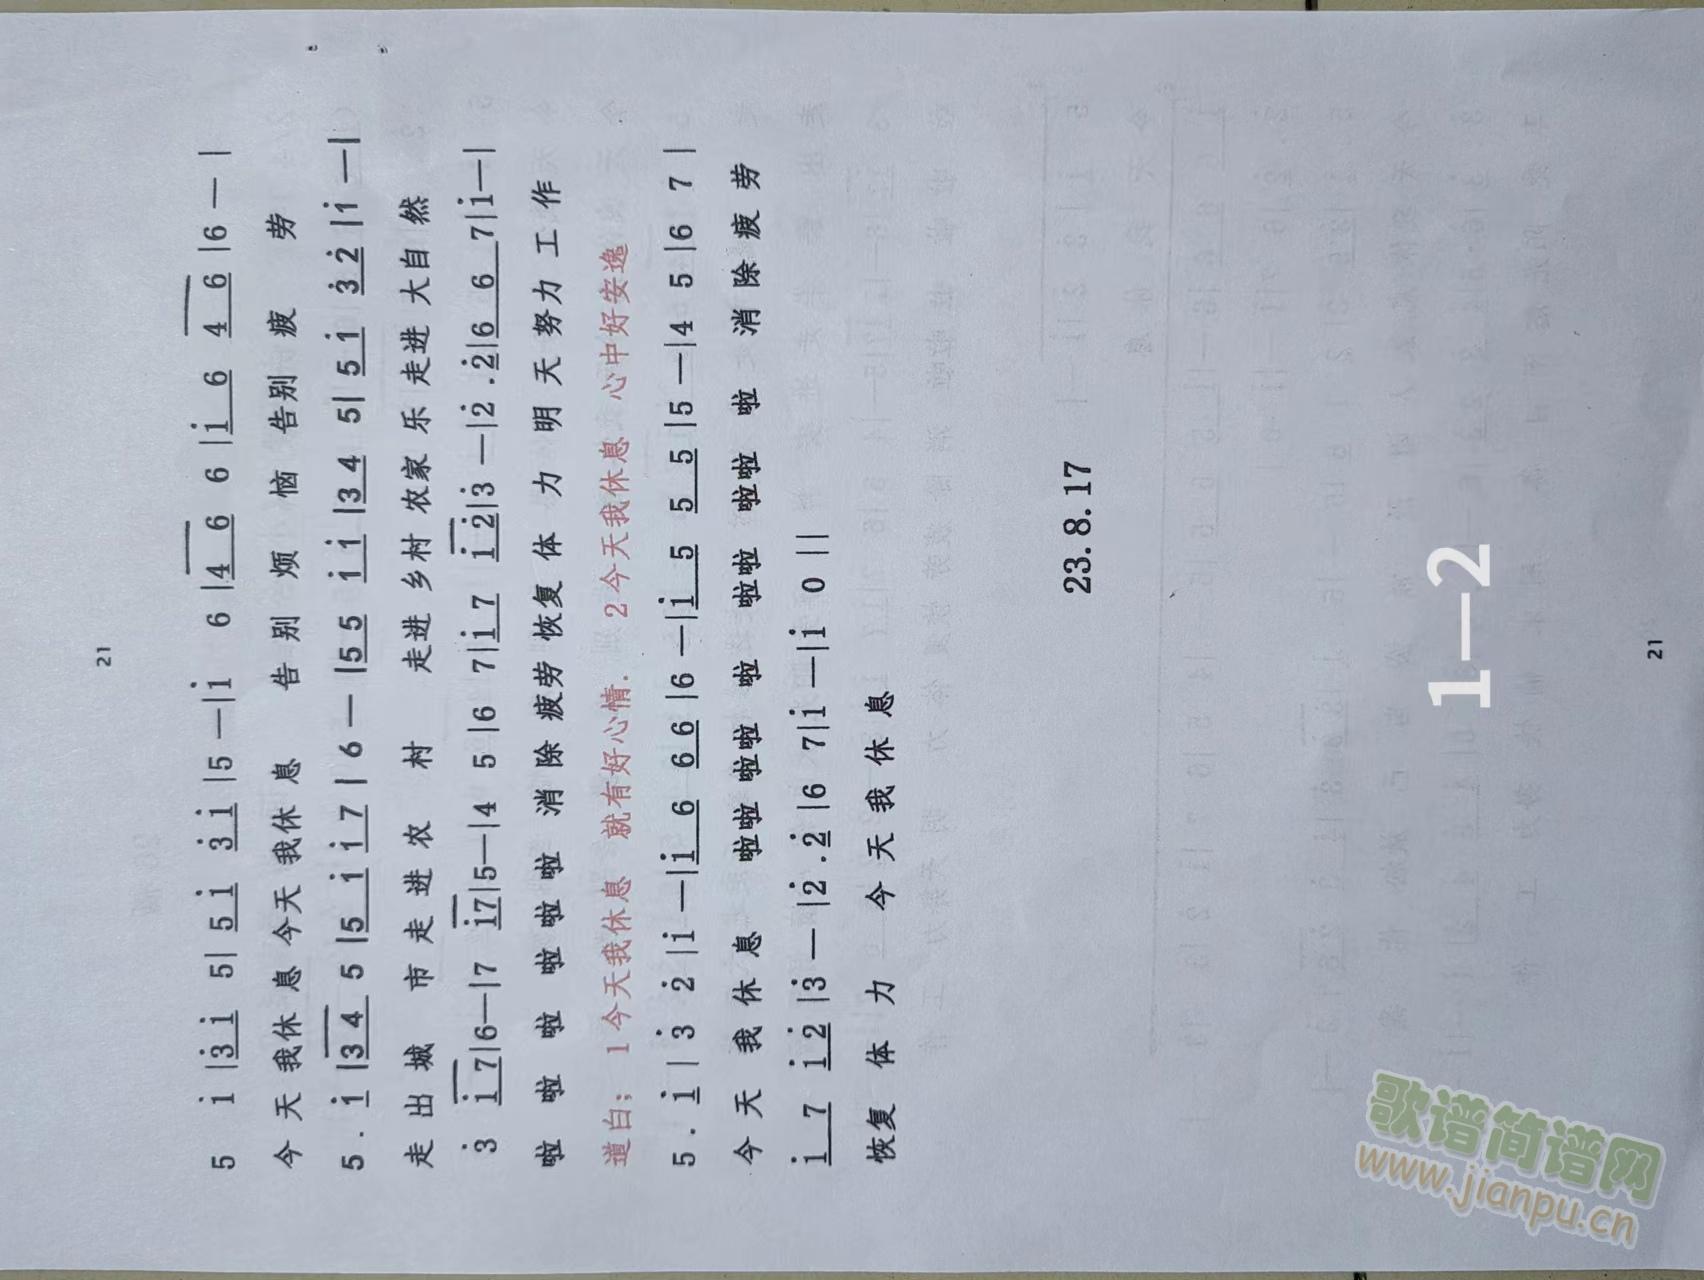 21
5 i̇ |3̇ i̇ 5| 5 i̇ 3̇ i̇ |5 —|i̇ 6 |4 6 6 |i̇ 6 4 6 |6 — |
今 天 我休 息 今天 我休 息 告 别 烦 恼 告别 疲 劳
5 . i̇ |3 4 5 |5 i̇ i̇ 7 | 6 — |5 5 i̇ i̇ |3 4 5| 5 i̇ 3̇ 2̇ |i̇ —|
走 出 城 市 走 进 农 村 走进 乡村 农家 乐 走进 大自 然
3̇ i̇ 7|6—|7 i̇7|5—|4 5 |6 7|i̇ 7 i̇ 2̇|3̇ —|2̇ . 2̇|6 6 7|i̇—|
啦 啦 啦 啦 啦 啦 消 除 疲劳 恢复 体 力 明 天 努力 工 作
道白；1今天我休息 就有好心情. 2今天我休息 心中好安逸
5 . i̇ | 3̇ 2̇ |i̇ —|i̇ 6 6 6 |6 —|i̇ 5 5 5 |5 —|4 5 |6 7 |
今 天 我 休 息 啦啦 啦啦 啦 啦啦 啦啦 啦 消 除 疲 劳
i̇ 7 i̇ 2̇ |3̇ — |2̇ . 2̇ |6 7|i̇ —|i̇ 0 ||
恢复 体 力 今 天 我 休 息
23.8.17
1—2
21
歌谱简谱网
www.jianpu.cn